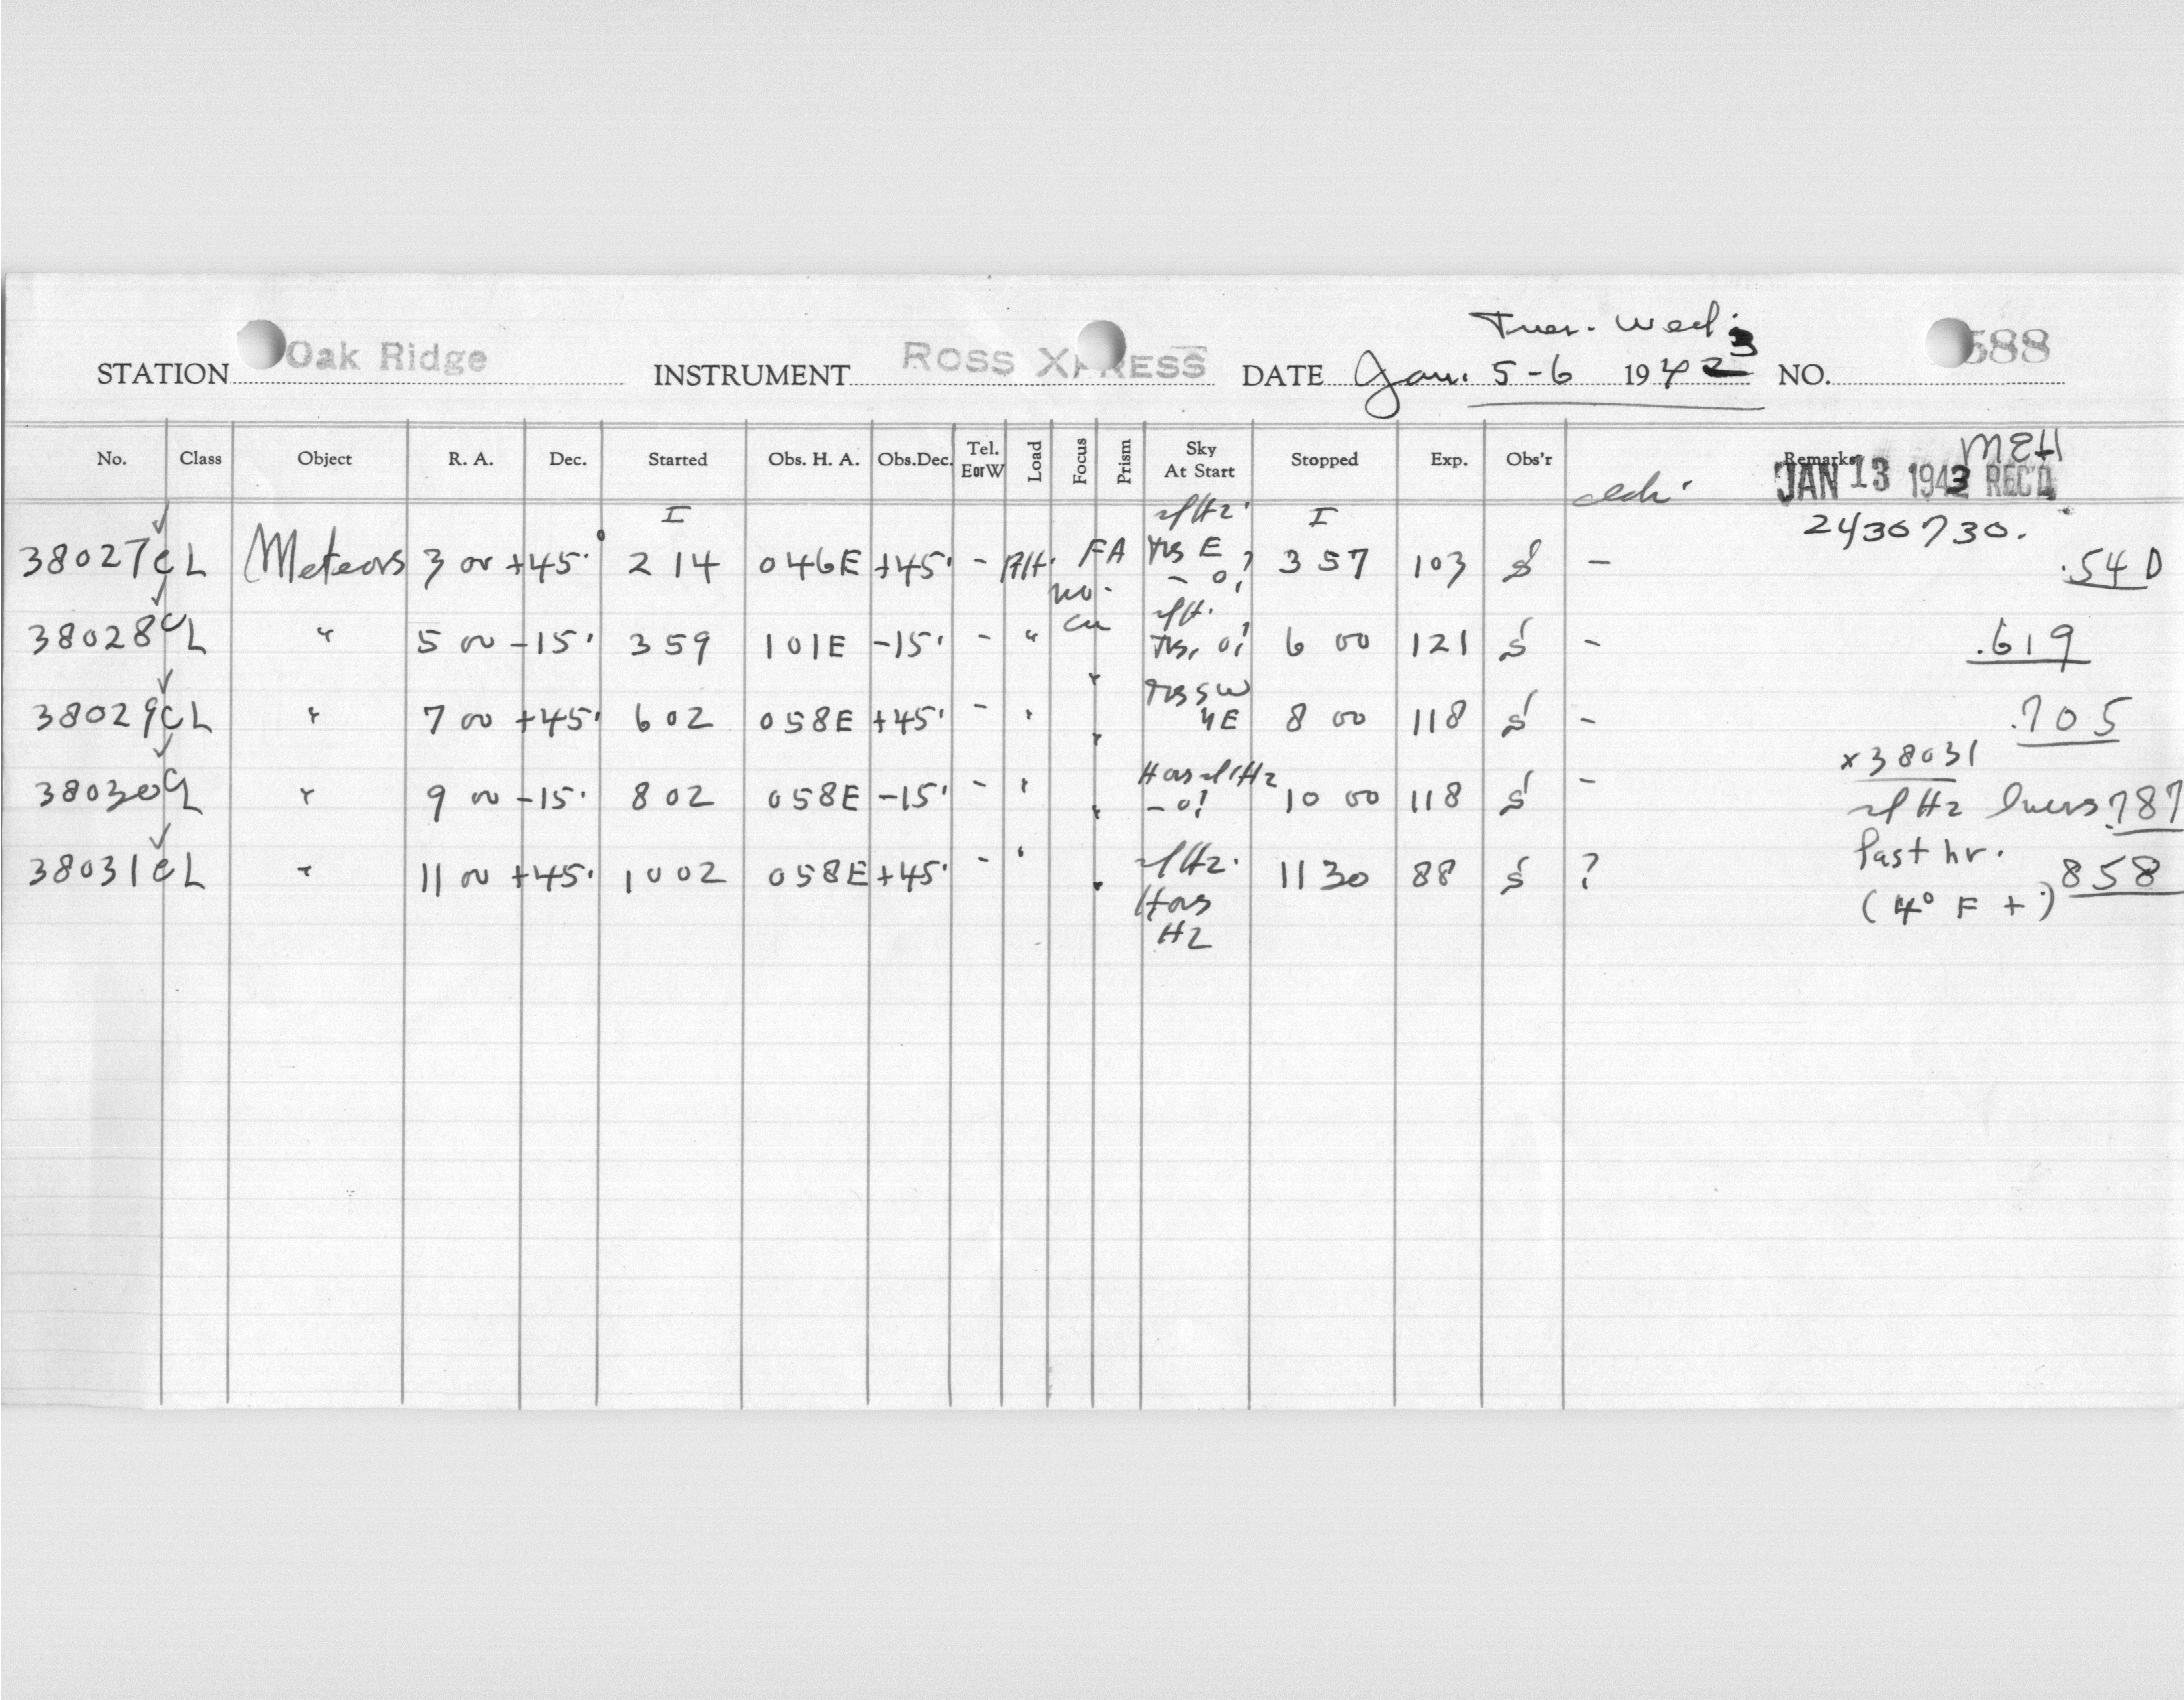 Tues. Wed.
STATION Oak Ridge INSTRUMENT ROSS XPRESS DATE Jan. 5-6 1942 3 NO. 588
No. Class Object R. A. Dec. Started Obs. H. A. Obs.Dec. Tel. EorW Load Focus Prism Sky At Start Stopped Exp. Obs'r Remarks MEH
JAN 13 1943 REC'D
2430730.
38027 CL Meteors 3 00 +45° I 2 14 046E +45° - FA E - 0! I 3 57 103 S - .540
38028 CL " 5 00 -15° 3 59 101E -15° - " 0! 6 00 121 S - .619
38029 CL " 7 00 +45° 6 02 058E +45° - " " SW 8 00 118 S - .705
x38031
38030 CL " 9 00 -15° 8 02 058E -15° - " " Hz - 0! 10 00 118 S - Hz .787
Past hr.
38031 CL " 11 00 +45° 10 02 058E +45° - " " Hz. Hz 11 30 88 S ? .858
(4° F +)